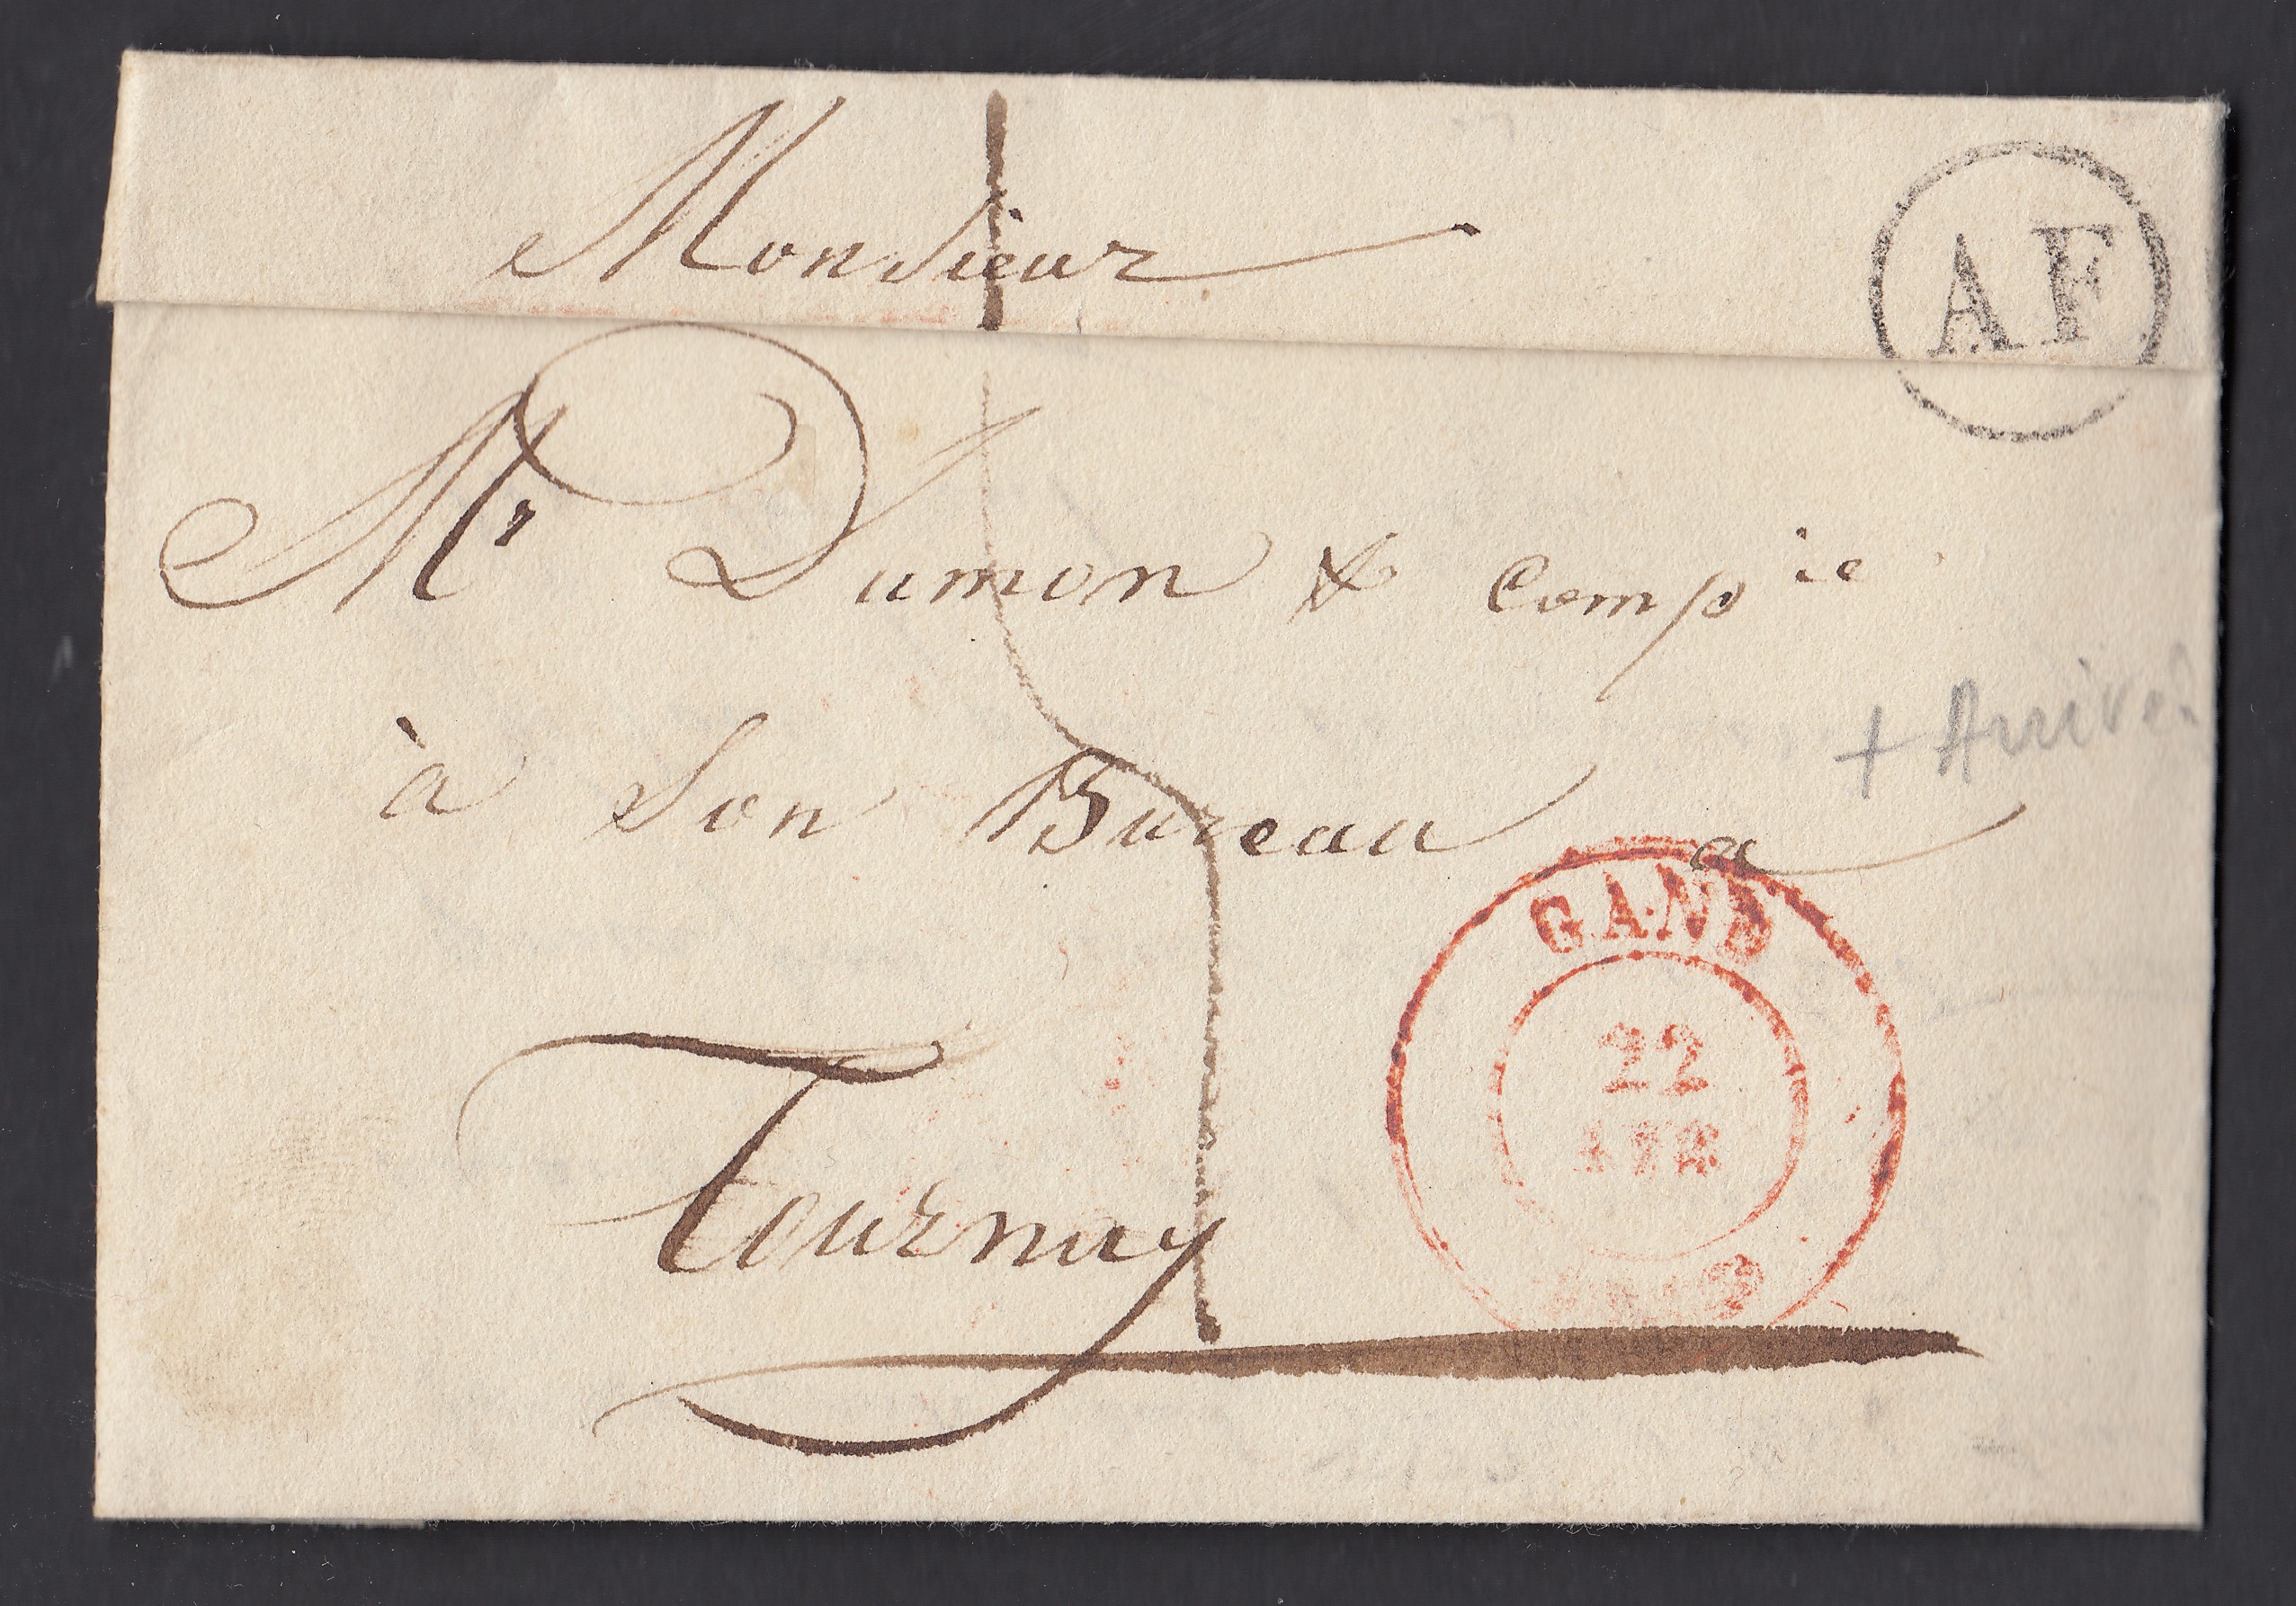 Monsieur
A F
Mr Dumon & Compie
à Son Bureau a
+ Arrivé
GAND
22
AVR
Tournay